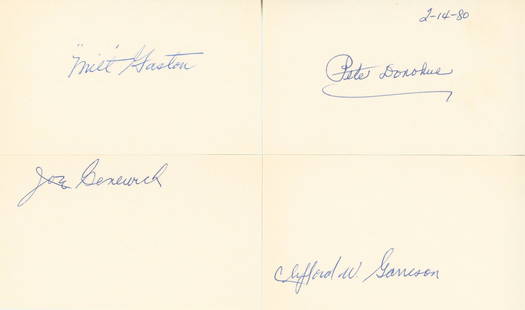 "Milt" Gaston
2-14-80
Pete Donohue
Joe Genewich
Clifford W. Garrison